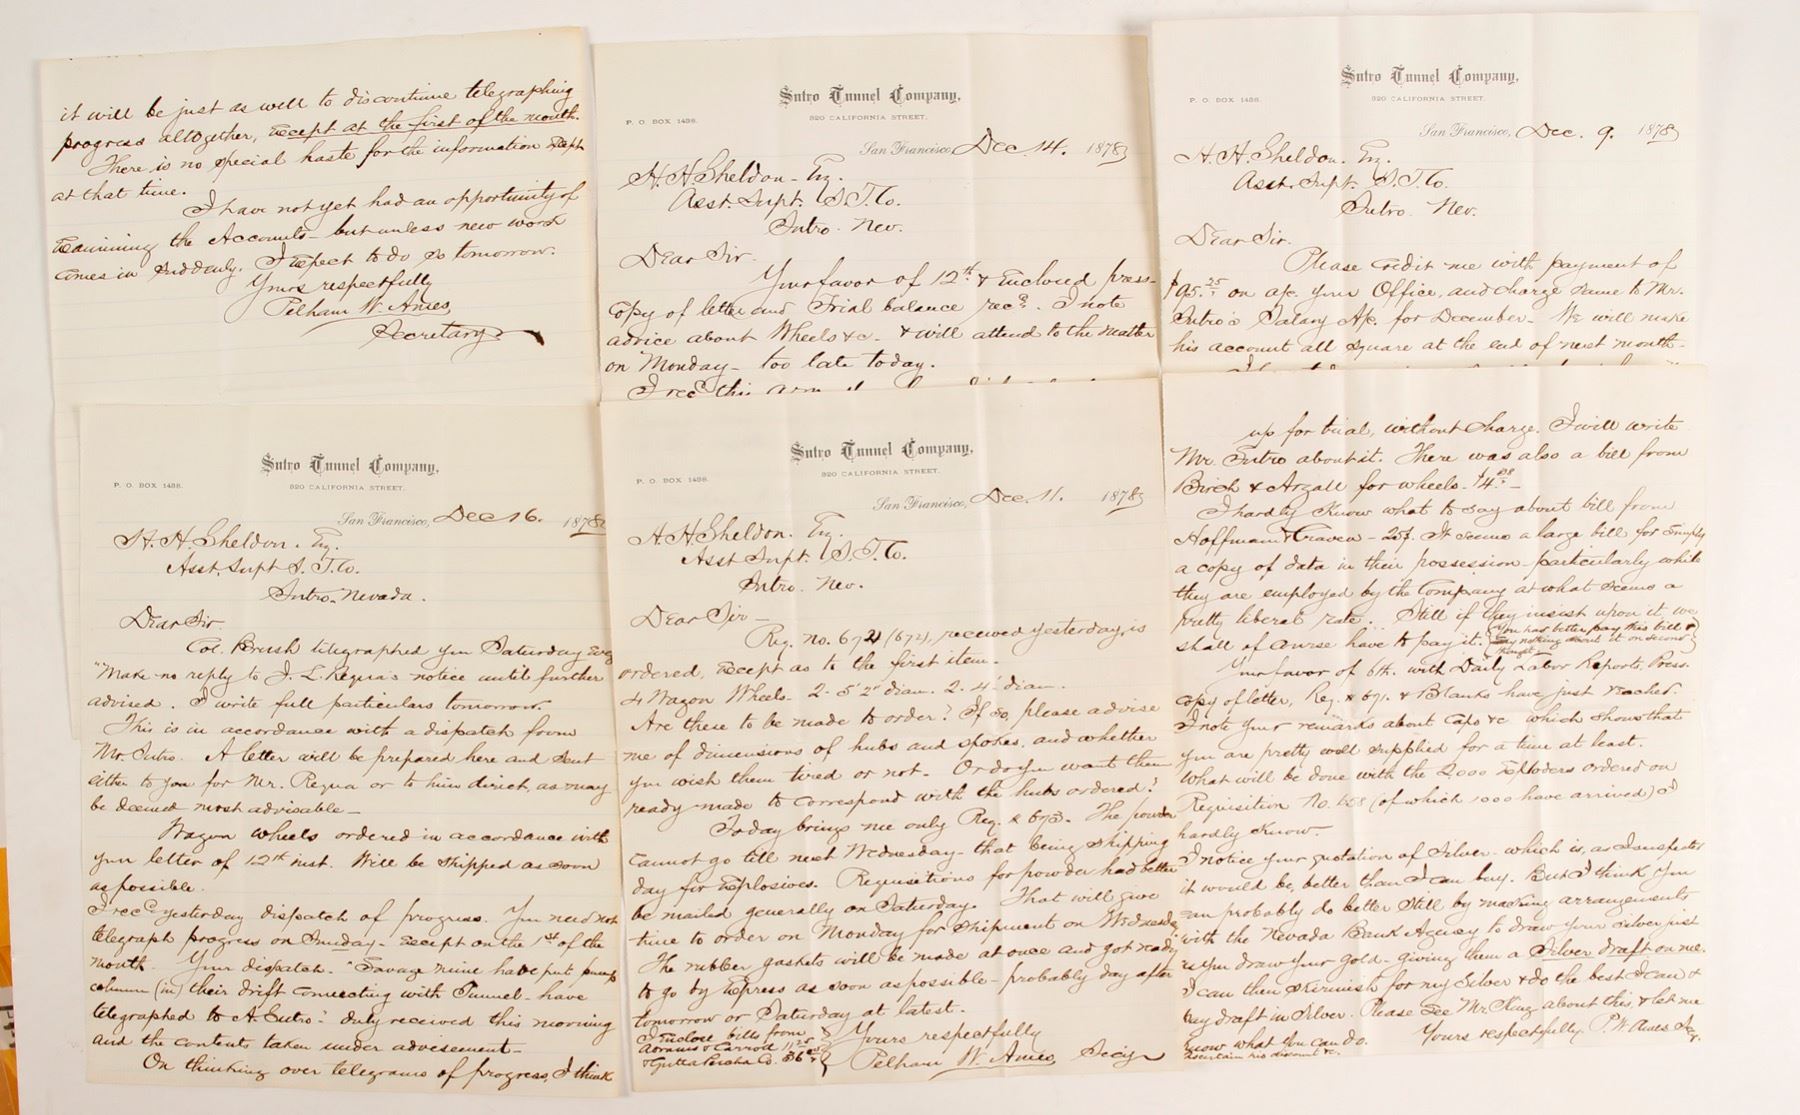 it will be just as well to discontinue telegraphing
progress altogether, except at the first of the month.
There is no special haste for the information except
at that time.
I have not yet had an opportunity of
examining the Accounts - but unless new work
comes in suddenly, I expect to do so tomorrow.
Yours respectfully
Pelham W. Ames,
Secretary
Sutro Tunnel Company,
P. O. BOX 1438.
320 CALIFORNIA STREET.
San Francisco, Dec. 14. 1878
H. H. Sheldon - Esq.
Asst. Supt. S. T. Co.
Sutro. Nev.
Dear Sir.
Your favor of 12th & enclosed press-
copy of letter and Trial balance recd. I note
advice about Wheels &c. & will attend to the matter
on Monday - too late today.
I recd this
Sutro Tunnel Company,
P. O. BOX 1438.
320 CALIFORNIA STREET.
San Francisco, Dec. 9. 1878
H. H. Sheldon. Esq.
Asst. Supt. S. T. Co.
Sutro. Nev.
Dear Sir.
Please credit me with payment of
$95.25 on a/c. your Office, and charge same to Mr.
Sutro's Salary A/c. for December - We will make
his account all square at the end of next month -
Sutro Tunnel Company,
P. O. BOX 1438.
320 CALIFORNIA STREET.
San Francisco, Dec 16. 1878
H. H. Sheldon. Esq.
Asst. Supt S. T. Co.
Sutro. Nevada.
Dear Sir.
Col. Brush telegraphed you Saturday Evg
"Make no reply to J. L. Requa's notice until further
advised. I write full particulars tomorrow.
This is in accordance with a dispatch from
Mr. Sutro. A letter will be prepared here and sent
either to you for Mr. Requa or to him direct, as may
be deemed most advisable -
Wagon wheels ordered in accordance with
your letter of 12th inst. Will be shipped as soon
as possible.
I recd yesterday dispatch of progress. You need not
telegraph progress on Sunday - except on the 1st of the
month. Your dispatch - "Savage mine have put pump
column (in) their drift connecting with Tunnel - have
telegraphed to A. Sutro." duly received this morning
and the contents taken under advisement -
On thinking over telegrams of progress, I think
Sutro Tunnel Company,
P. O. BOX 1438.
320 CALIFORNIA STREET.
San Francisco, Dec. 11. 1878
H. H. Sheldon. Esq.
Asst Supt. S. T. Co.
Sutro. Nev.
Dear Sir -
Req. no. 672 (672), received yesterday, is
ordered, except as to the first item.
4 Wagon Wheels - 2 - 5' 2" diam. 2 - 4' diam.
Are these to be made to order? If so, please advise
me of dimensions of hubs and spokes, and whether
you wish them tired or not - Or do you want them
ready made to correspond with the hubs ordered?
Today brings me only Req. & 673. The powder
cannot go till next Wednesday - that being shipping
day for explosives. Requisitions for powder had better
be mailed generally on Saturday. That will give
time to order on Monday for shipment on Wednesday
The rubber gaskets will be made at once and got ready
to go by Express as soon as possible - probably day after
tomorrow or Saturday at latest.
I enclose bills from
Abrams & Carroll 11.25
& Gutta Percha Co. 36
Yours respectfully
Pelham W. Ames, Secy
up for trial, without charge. I will write
Mr. Sutro about it. There was also a bill from
Birch & Argall for wheels - $4.
I hardly know what to say about bill from
Hoffmann & Craven - 25$. It seems a large bill for simply
a copy of data in their possession - particularly while
they are employed by the Company at what seems a
pretty liberal rate. Still if they insist upon it, we
shall of course have to pay it. (You had better pay this bill &
say nothing about it on second
thought.)
Your favor of 6th. with Daily Labor Reports, Press
copy of letter, Req. & 671. & Blanks have just reached.
I note your remarks about Caps &c which shows that
you are pretty well supplied for a time at least.
What will be done with the 2,000 Exploders ordered on
Requisition No. 658 (of which 1000 have arrived) I
hardly know.
I notice your quotation of Silver - which is, as I suspected
it would be, better than I can buy. But I think you
can probably do better still by making arrangements
with the Nevada Bank Agency to draw your silver just
as you draw your gold - giving them a Silver draft on me.
I can then skirmish for my Silver & do the best I can &
pay draft in Silver. Please see Mr. King about this, & let me
know what you can do. Yours respectfully. P. W. Ames Secy.
ascertain his discount &c.